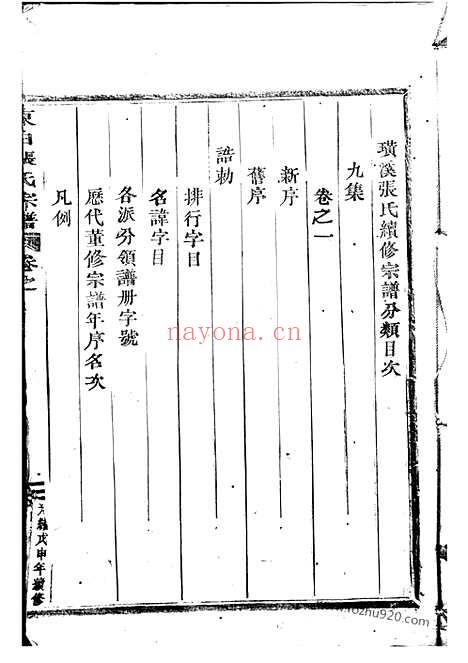 璜溪張氏續修宗譜分類目次
九集
卷之一
新序
舊序
誥勅
排行字目
名諱字目
各派分領譜册字號
歷代董修宗譜年序名次
凡例
張氏宗譜
卷之
光緒戊申年續修
nayona.cn